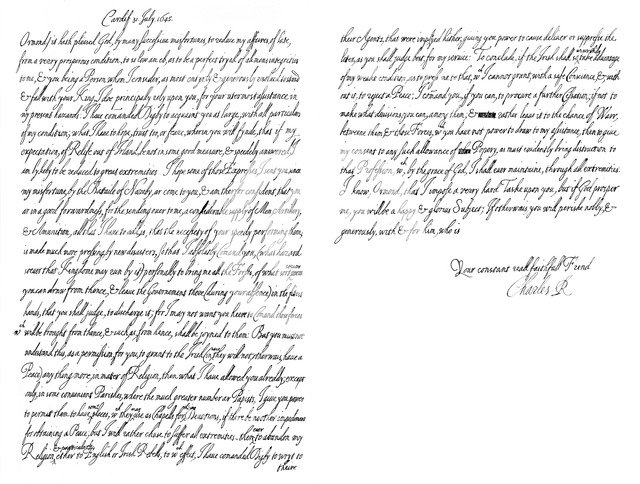 Cardif 31 July 1645.
Ormond, it hath pleased God, by many successive misfortunes, to reduce my affaires, of late,
from a verry prosperous condition, to so low an eb, as to be a perfect tryall of all mens integrities
to me; & you being a Person whom I consider, as most entyrly & generously resolved to stand
& fall with your King, I doe principally rely upon you, for your utermost assistance, in
my present hazards: I have comanded Digby to acquaint you at large, with all particulars
of my condition; what I have to hope, trust too, or feare; wherin you will fynde, that if my
expectation, of Relife out of Irland, be not in some good measure, & speedely answered, I
am lykely to be reduced to great extremities. I hope some of those Expresses I sent you since
my misfortune, by the Battaile of Nazby, ar come to you, & am therfor confident, that you
ar in a good forwardness, for the sending over to me, a considerable supply of Men, Artillery,
& Amunition; all that I have to add is, that the necessety of your speedy performing them,
is made much more pressing by new disasters; so that I absolutly Comand you, (what hazard
soever that Kingdome may run by it) personally to bring me all the Forses, of what sort soever
you can draw from thence, & leave the Governement there (during your absence) in the fittest
hands, that you shall judge, to discharge it; for I may not want you heere to Comand those forces
wch will be brought from thence, & such as, from hence, shall be joyned to them: But you must not
understand this, as a permission for you, to grant to the Irish (in case they will not otherwais have a
Peace) any thing more, in matter of Religion, then what I have allowed you alreddy; except
only in some convenient Parishes, where the much greater number ar Papists, I give you power
to permitt them to have some places, wch they may use as Chapells for theire Devotions, if there be no other impediment
for obtaining a Peace; but I will rather chuse to suffer all extremities, then ever to abandon my
Religion, & particularly ether to English or Irish Rebells, to wch effect, I have comanded Digby to wryt to
theire
their Agents, that were imployed hither, giving you power to cause deliver or suppresse the
letter, as you shall judge best for my service: To conclude, if the Irish shall so unworthily take advantage
of my weake condition, as to press me to that, wch I cannot grant, with a safe Concience, &, with
out it, to reject a Peace; I comand you, if you can, to procure a further Cessation; if not, to
make what devisions you can, among them, & rather leave it to the chance of Warr,
betweene them, & those Forces, wch you have not power to draw to my assistance, then to give
my consent to any such allowance of Popery, as must evidently bring distruction to
that Profession, wch, by the grace of God, I shall ever maintaine, through all extremities:
I know, Ormond, that I impose a verry hard Taske upon you, but if God prosper
me, you will be a happy & glorious Subject; If otherwais, you will perishe nobly, &
generously, with & for him, who is
Your constant reall faithfull Frend
Charles R